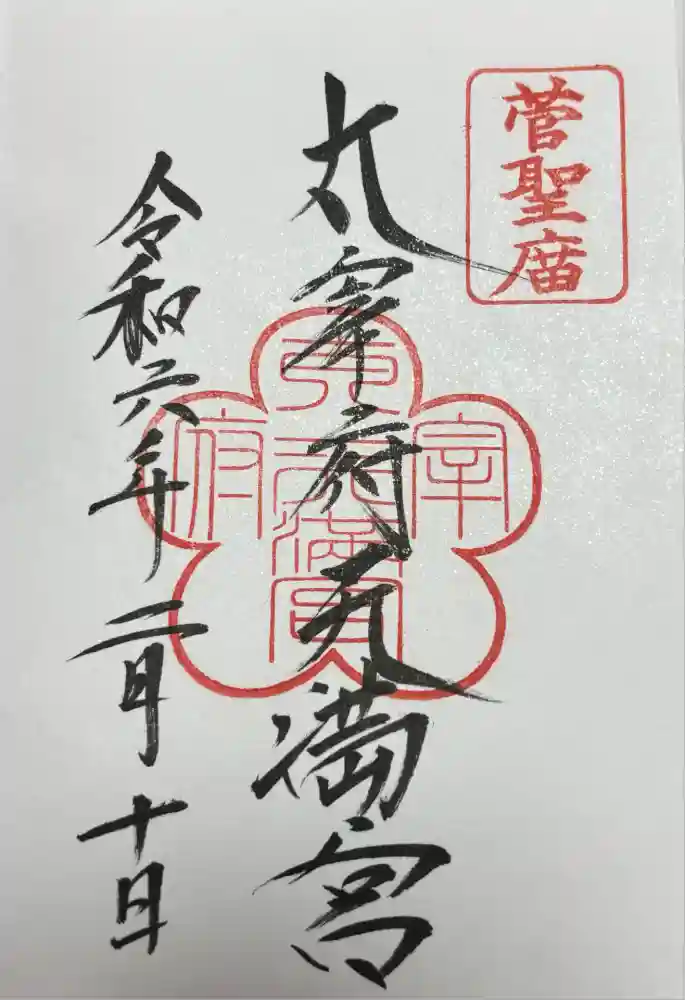 菅聖庿
太宰府天満宮
令和六年二月十日
宰府天満宮